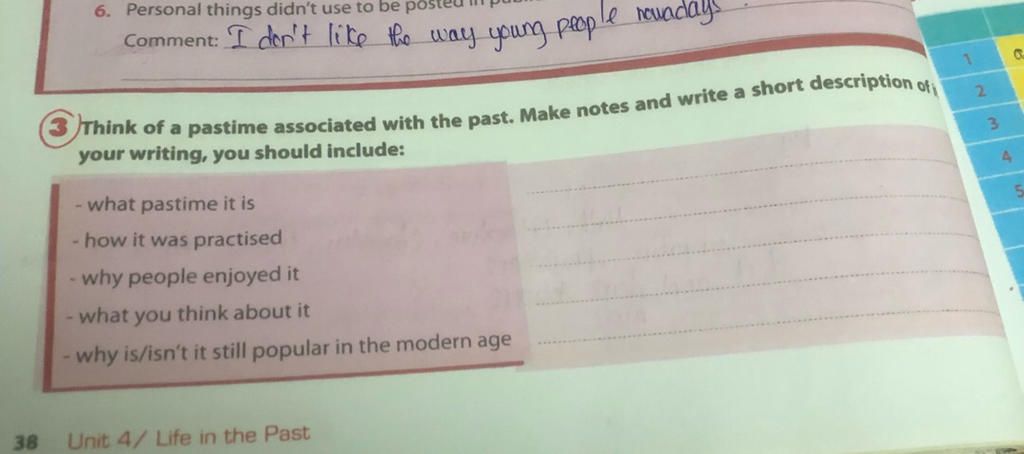 6. Personal things didn't use to be posted in
Comment: I don't like the way young people nowadays
3 Think of a pastime associated with the past. Make notes and write a short description of
your writing, you should include:
- what pastime it is
- how it was practised
- why people enjoyed it
- what you think about it
- why is/isn't it still popular in the modern age
38 Unit 4/ Life in the Past
1
2
3
4
5